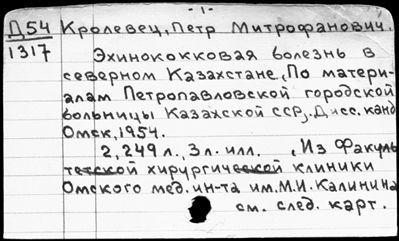 - 1 -
Д54 Кролевец, Петр Митрофанович.
1317 Эхинококковая болезнь в
северном Казахстане, По матери-
алам Петропавловской городской
больницы Казахской ССР. Дисс. канд
Омск, 1954.
2, 249 л., 3 л. илл. , Из Факуль
тетской хирургической клиники
Омского мед. ин-та им. М.И. Калинина
см. след. карт.